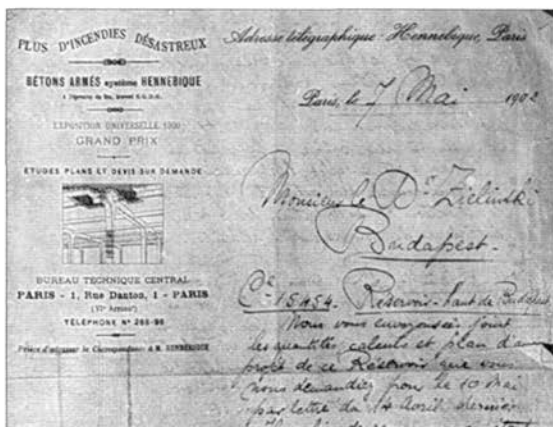 PLUS D'INCENDIES DÉSASTREUX
BÉTONS ARMÉS système HENNEBIQUE
EXPOSITION UNIVERSELLE 1900
GRAND PRIX
ETUDES PLANS ET DEVIS SUR DEMANDE
BUREAU TECHNIQUE CENTRAL
PARIS - 1, Rue Danton, 1 - PARIS
TÉLÉPHONE N° 266-96
Prière d'adresser la Correspondance à M. HENNEBIQUE
Adresse télégraphique - Hennebique, Paris
Paris, le 7 Mai 1902
Monsieur le Dr Zielinski
Budapest.
15454. Réservoir - haut de Budapest
Nous vous envoyons ci joint
les quantités, calculs et plan d'un
projet de ce Réservoir que vous
nous demandiez pour le 10 Mai
par lettre du 14 Avril dernier